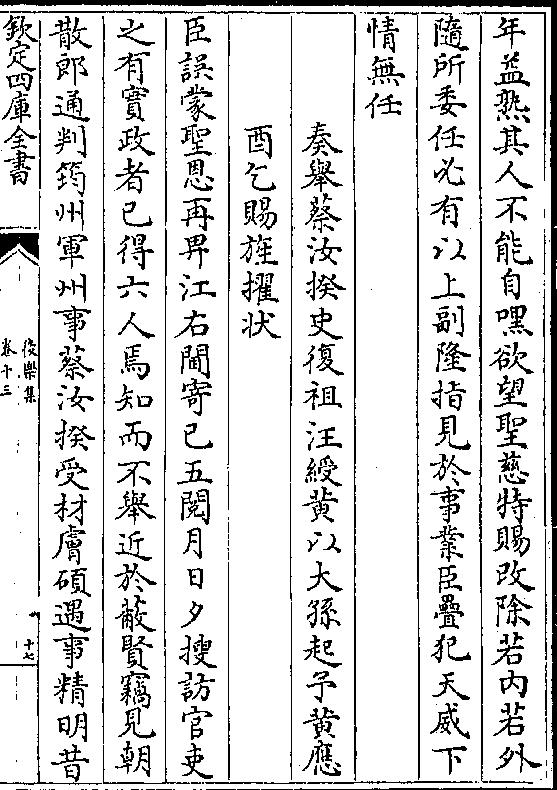 年益熟其人不能自嘿欲望聖慈特賜改除若内若外
隨所委任必有以上副隆指見於事業臣疊犯天威下
情無任
奏舉蔡汝揆史復祖汪綬黃以大孫起予黃應
酉乞賜旌擢状
臣誤蒙聖恩再畀江右閫寄已五閲月日夕搜訪官吏
之有實政者已得六人焉知而不舉近於蔽賢竊見朝
散郎通判筠州軍州事蔡汝揆受材膚碩遇事精明昔
欽定四庫全書
後樂集
卷十三
十七